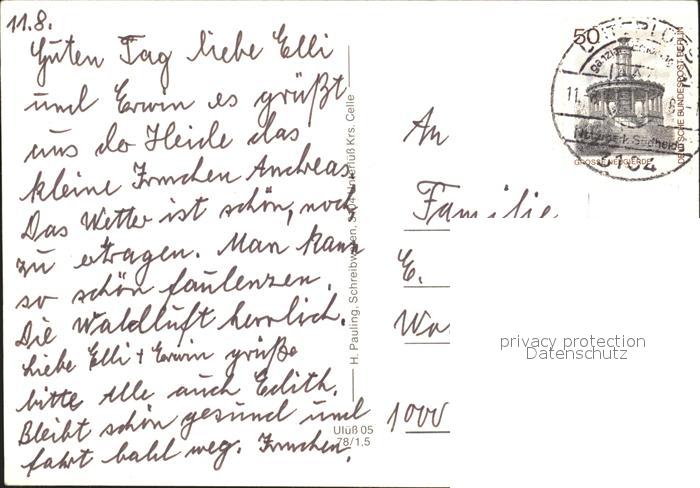 11.8.
Guten Tag liebe Elli
und Erwin es grüßt
aus der Heide das
kleine Irmchen Andreas.
Das Wetter ist schön, noch
zu ertragen. Man kann
so schön faulenzen.
Die Waldluft herrlich.
Liebe Elli + Erwin grüße
bitte Alle auch Edith.
Bleibt schön gesund und
fahrt bald weg. Irmchen.
H. Pauling, Schreibwaren, Unterlüß Krs. Celle
Ulüß 05
78/1,5
50
DEUTSCHE BUNDESPOST BERLIN
GROSSE NEUGIERDE
11.
Naturpark Südheide
3104
An
Familie
E.
Wa
1000
privacy protection
Datenschutz